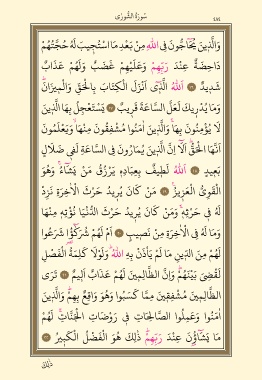 سُورَةُ الشُّورٰى
وَالَّذِينَ يُحَٓاجُّونَ فِي اللهِ مِنْ بَعْدِ مَا اسْتُجِيبَ لَهُ حُجَّتُهُمْ
دَاحِضَةٌ عِنْدَ رَبِّهِمْ وَعَلَيْهِمْ غَضَبٌ وَلَهُمْ عَذَابٌ
شَدِيدٌ اَللهُ الَّذِٓي اَنْزَلَ الْكِتَابَ بِالْحَقِّ وَالْمِيزَانَ
وَمَا يُدْرِيكَ لَعَلَّ السَّاعَةَ قَرِيبٌ يَسْتَعْجِلُ بِهَا الَّذِينَ
لَا يُؤْمِنُونَ بِهَا وَالَّذِينَ اٰمَنُوا مُشْفِقُونَ مِنْهَا وَيَعْلَمُونَ
اَنَّهَا الْحَقُّ اَلَٓا اِنَّ الَّذِينَ يُمَارُونَ فِي السَّاعَةِ لَفِي ضَلَالٍ
بَعِيدٍ اَللهُ لَطِيفٌ بِعِبَادِهِ يَرْزُقُ مَنْ يَشَٓاءُ وَهُوَ
الْقَوِيُّ الْعَزِيزُ مَنْ كَانَ يُرِيدُ حَرْثَ الْاٰخِرَةِ نَزِدْ
لَهُ فِي حَرْثِهِ وَمَنْ كَانَ يُرِيدُ حَرْثَ الدُّنْيَا نُؤْتِهِ مِنْهَا
وَمَا لَهُ فِي الْاٰخِرَةِ مِنْ نَصِيبٍ اَمْ لَهُمْ شُرَكٰٓؤُا شَرَعُوا
لَهُمْ مِنَ الدِّينِ مَا لَمْ يَأْذَنْ بِهِ اللهُ وَلَوْلَا كَلِمَةُ الْفَصْلِ
لَقُضِيَ بَيْنَهُمْ وَاِنَّ الظَّالِمِينَ لَهُمْ عَذَابٌ اَلِيمٌ تَرَى
الظَّالِمِينَ مُشْفِقِينَ مِمَّا كَسَبُوا وَهُوَ وَاقِعٌ بِهِمْ وَالَّذِينَ
اٰمَنُوا وَعَمِلُوا الصَّالِحَاتِ فِي رَوْضَاتِ الْجَنَّاتِ لَهُمْ
مَا يَشَٓاؤُ۫نَ عِنْدَ رَبِّهِمْ ذٰلِكَ هُوَ الْفَضْلُ الْكَبِيرُ
ذٰلِكَ